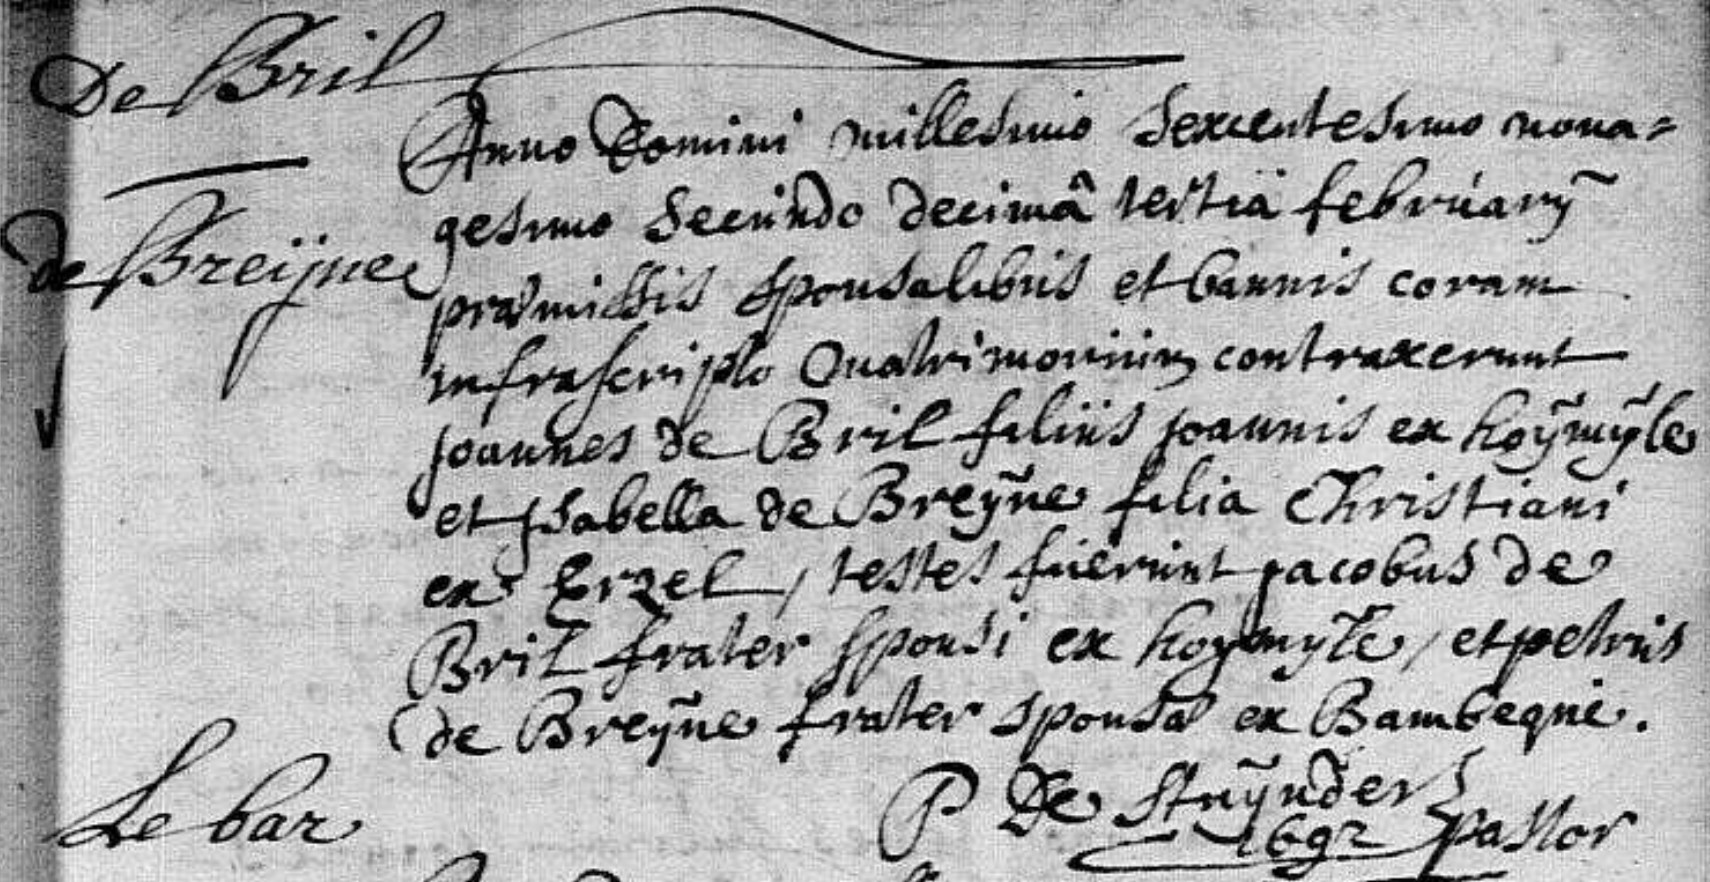 De Bril
Anno Domini millesimo sexcentesimo nona=
gesimo secundo decimâ tertia februarÿ
de Breijne
præmissis sponsalibus et bannis coram
infrascripto Matrimonium contraxerunt
joannes de Bril filius joannis ex hoÿmÿle
et jsabella de Breÿne filia Christiani
ex Erzel, testes fuerunt jacobus de
Bril frater sponsi ex hoymyle, et petrus
de Breÿne frater sponsæ ex Bambeque.
P De Pastor
1692
Le bar